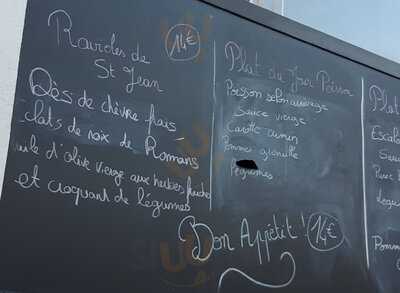 Ravioles de
St Jean
14€
Dès de chèvre frais
clats de noix de Romans
uile d'olive vierge aux herbes fraiches
et croquant de légumes
Plat du Jour Poisson
Poisson selon arrivage
Sauce vierge
Carotte cumin
Pommes grenaille
Légumes
Bon Appétit !
14€
Plat
Escalo
Sau
Puree
Légu
Pomm